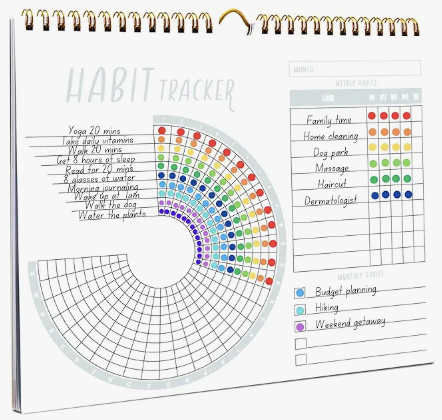 HABIT TRACKER
MONTH:
WEEKLY HABITS
Yoga 20 mins
Take daily vitamins
Walk 20 mins
Get 8 hours of sleep
Read for 20 mins
8 glasses of water
Morning journaling
Wake up at 7am
Walk the dog
Water the plants
Family time
Home cleaning
Dog park
Massage
Haircut
Dermatologist
MONTHLY HABITS
Budget planning
Hiking
Weekend getaway